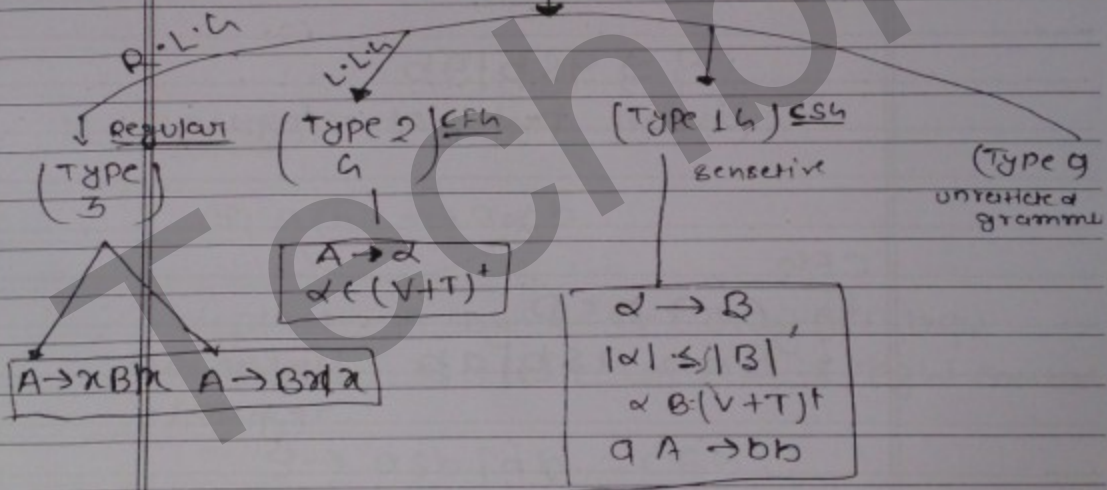 R.L.G
L.L.G
Regular
(Type 3)
(Type 2 G) CFG
(Type 1 G) CSG
sensetive
(Type
gramm
A → α
α ∈ (V+T)⁺
A → xB|x A → Bx|x
α → B
|α| ≤ |B|
α B:(V+T)⁺
a A → bb
Techp